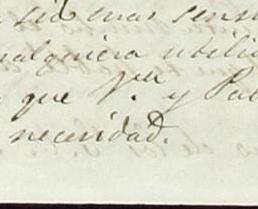 sido mas sens
ualquiera utilid
que V. y Pa
necesidad.